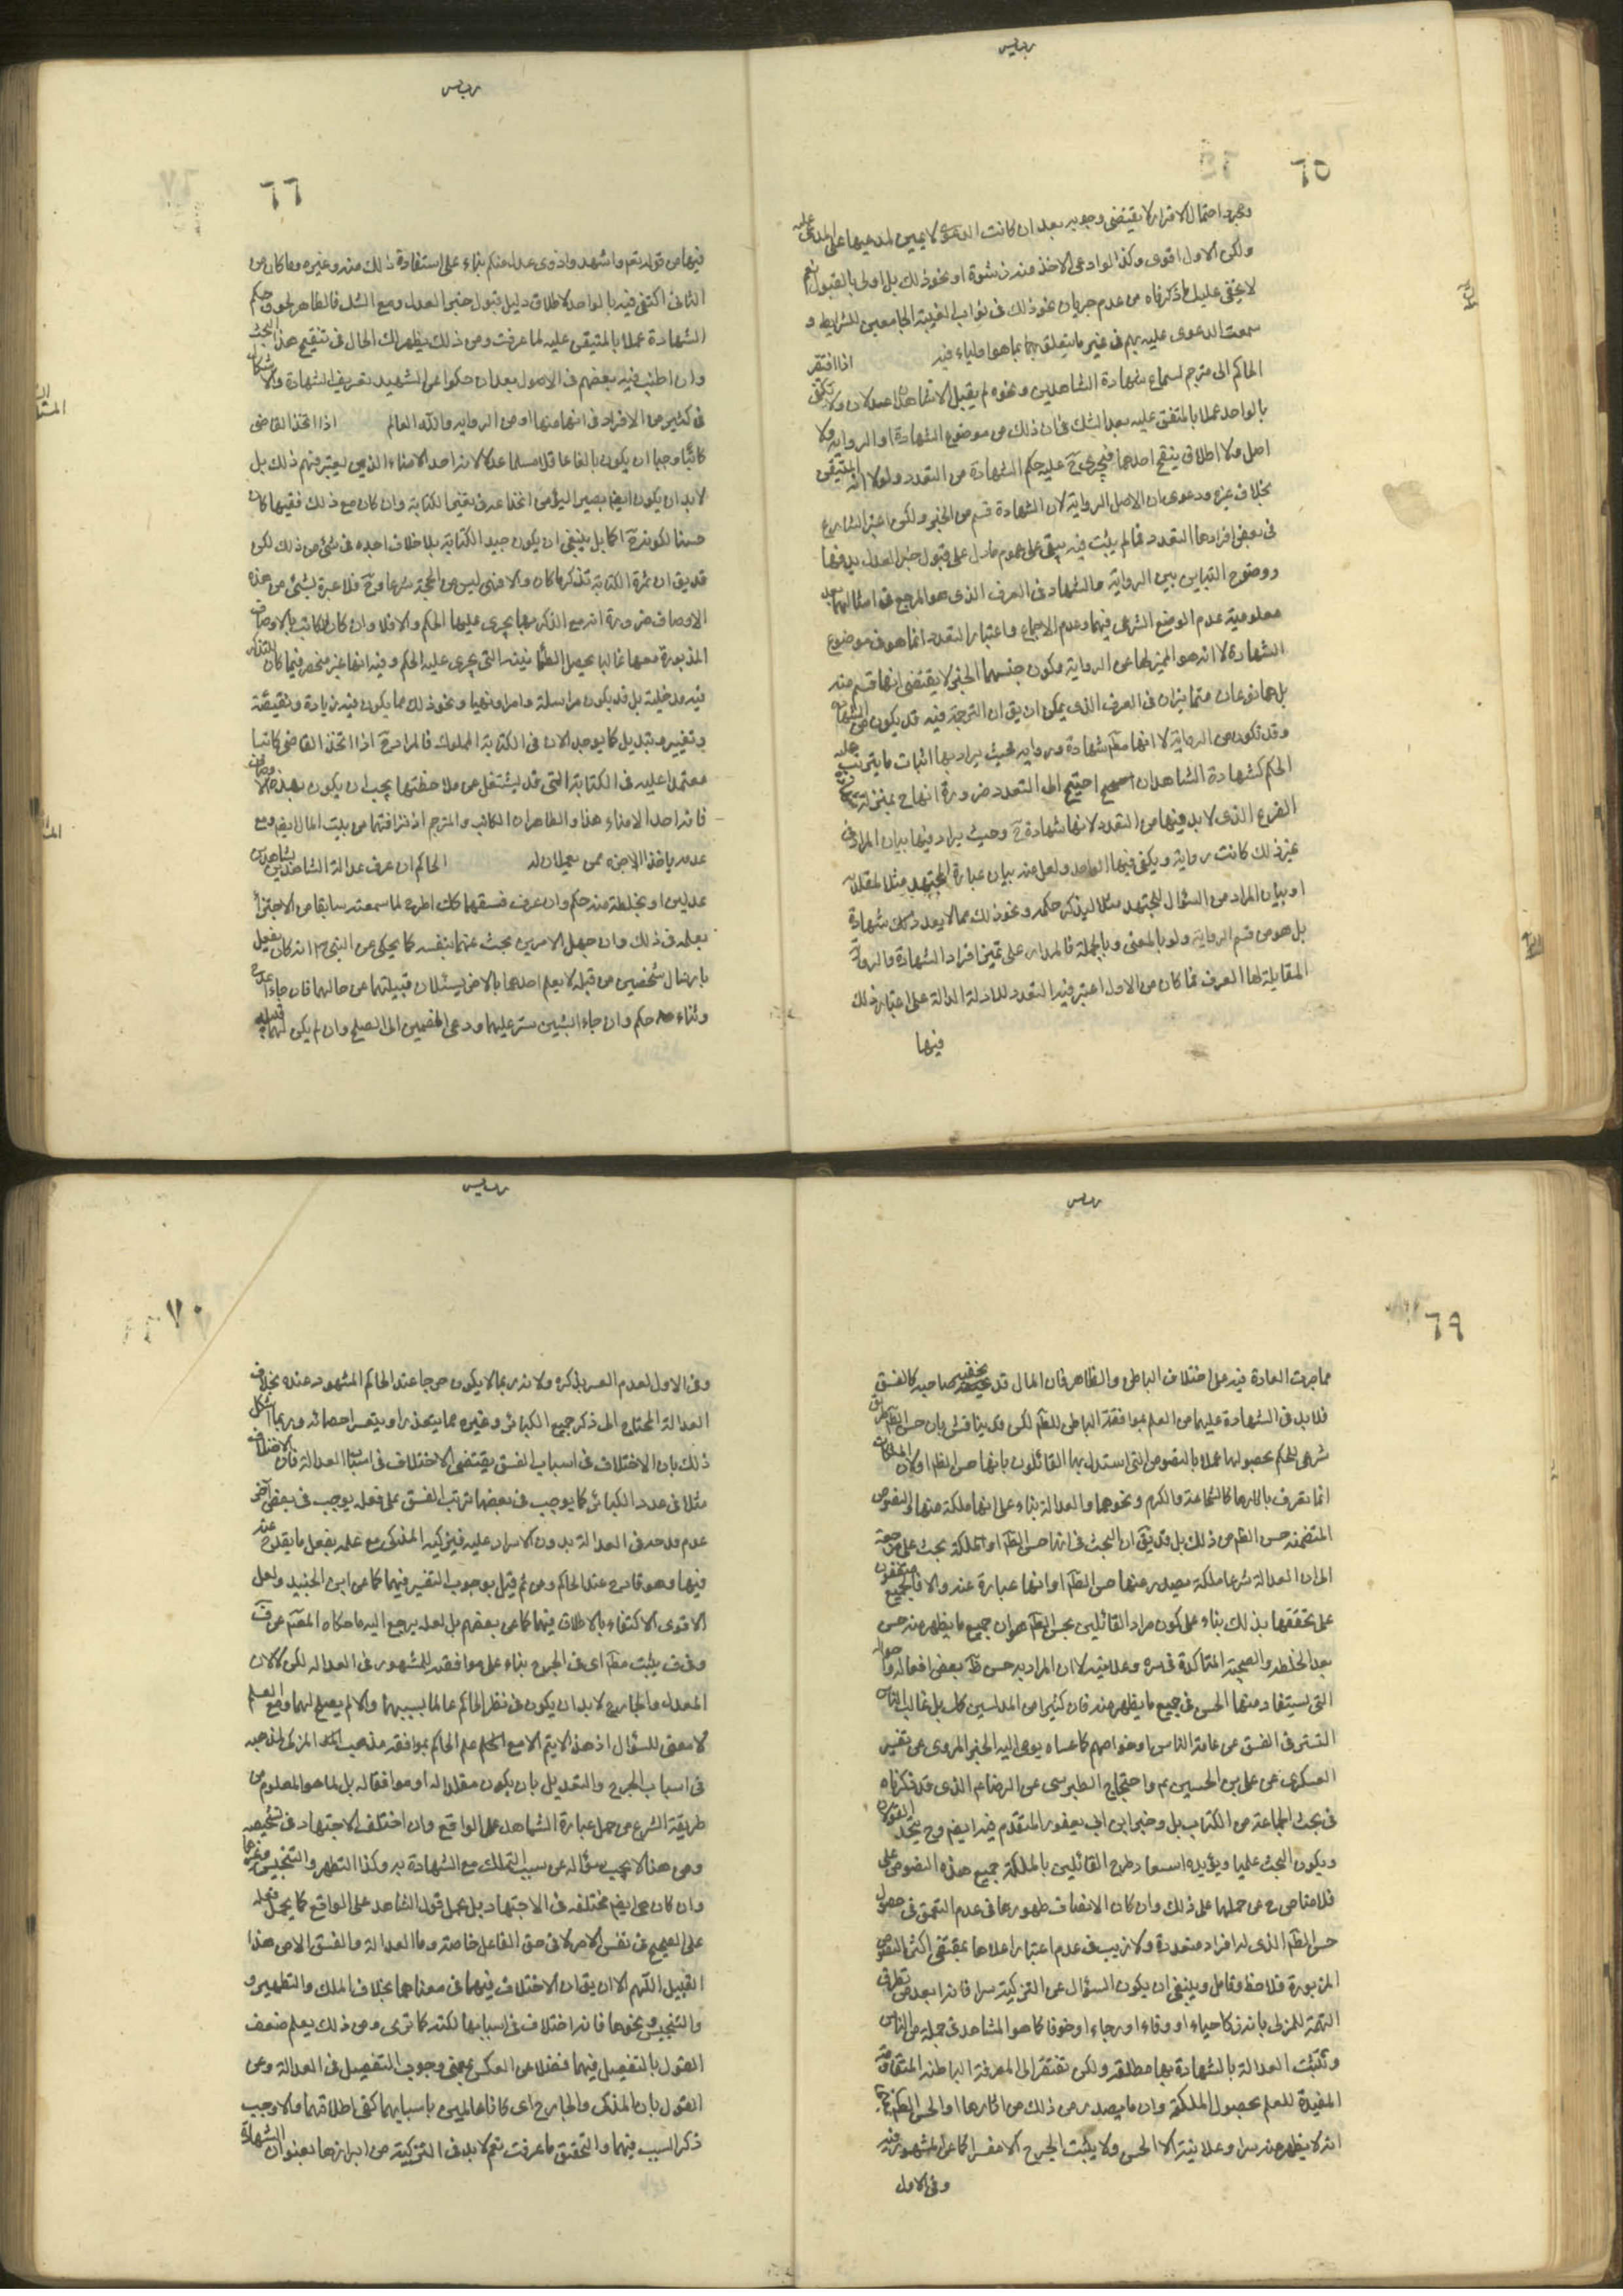 ٦٥
ومجرد احتمال الاقرار لا يقتضى وجوبه بعد ان كانت الدعوى لا يمين لمدعيها على المدعى عليه
ولكن الاول اقوى وكذا لو ادعى الاخذ منه رشوة او نحو ذلك بل اولى بالقبول نعم
لا يخفى عليك ما ذكرناه من عدم جريان نحو ذلك فى نواب الغيبة الجامعين للشرايط و
سمعت الدعوى عليهم فى غير ما يتعلق بما هو اولياء فيه اذا افتقر
الحاكم الى مترجم لسماع شهادة الشاهدين ونحوه لم يقبل الا شاهدان عدلان ولا يكتفى
بالواحد عملا بالمتفق عليه بعد الشك فى ان ذلك من موضوع الشهادة او الرواية ولا
اصل ولا اطلاق ينقح احدهما فيجرى ح عليه حكم الشهادة من التعدد ولو لانه المتيقن
بخلاف غيره ودعوى ان الاصل الرواية لان الشهادة قسم من الخبر ولكن اعتبر الشارع
فى بعض افرادها التعدد فما لم يثبت فيه يبقى على عموم ما دل على قبول خبر العدل يدفعها
ووضوح التباين بين الرواية والشهادة فى العرف الذى هو المرجع فى امثالهما بعد
معلومية عدم الوضع الشرعى فيهما وعدم الاجماع واعتبار التعدد انما هو فى موضوع
الشهادة لا انه هو المميز لها عن الرواية وكون جنسهما الخبر لا يقتضى انها قسم منه
بل هما نوعان متمايزان فى العرف الذى يمكن ان يق ان الترجمة فيه قد يكون من الشهادة
وقد تكون من الرواية لا انها مطم شهادة ورواية فحيث يراد بها اثبات ما يترتب عليه
الحكم كشهادة الشاهدان احتيج الى التعدد ضرورة انها ح بمنزلة شهادة
الفرع الذى لا بد فيها من التعدد لانها شهادة ح وحيث يراد فيها بيان المراد فى
غير ذلك كانت رواية ويكفى فيها الواحد ولعل منه بيان عبارة المجتهد مثلا لمقلديه
او بيان المراد من السؤال للمجتهد مثلا ليذكر حكمه ونحو ذلك مما لا يعد ذلك شهادة
بل هو من قسم الرواية ولو بالمعنى وبالجملة فالمدار على تميز افراد الشهادة والرواية
المقابلة لها العرف فما كان من الاول اعتبر فيه التعدد للادلة الدالة على اعتبار ذلك
فيها
٦٦
فيها من قوله تعم واشهدوا ذوى عدل منكم بناء على استفادة ذلك منه وغيره وما كان من
الثانى اكتفى فيه بالواحد لاطلاق دليل قبول خبر العدل ومع الشك فالظاهر لحوق حكم
الشهادة عملا بالمتيقن عليه لما عرفت ومن ذلك يظهر لك الحال فى تنقيح هذا البحث
وان اطنب فيه بعضهم فى الاصول بعد ان حكوا عن الشهيد تعريف الشهادة والاشكال
فى كثير من الافراد فى انها منها او من الرواية والله العالم اذا اتخذ القاضى
كاتبا وجب ان يكون بالغا عاقلا مسلما عدلا لانه احد الامناء الذين يعتبر فيهم ذلك بل
لا بد ان يكون ايضا بصيرا ليؤمن انخداعه فى تغير الكتابة وان كان مع ذلك فقيها كان
حسنا لكونه ح اكمل بل ينبغى ان يكون جيد الكتابة بلا خلاف اجده فى شئ من ذلك لكن
قد يق ان ثمرة الكتابة تذكر ما كان والا فهى ليس من الحجة شرعا وح فلا عبرة بشئ من هذه
الاوصاف ضرورة انه مع الذكر بها يجرى عليها الحكم والا فلا وان كان الكاتب بالاوصاف
المذبورة معها غالبا يحصل الطمانينة التى يجرى عليه الحكم وفيه انها غير منحصر فيما كان للتذكر
فيه مدخلية بل قد يكون مراسلة وامرا ونهيا ونحو ذلك مما يكون فيه زيادة ونقيصة
وتغيير وتبديل كما يوجد الان فى الكتابة المملوك فالمراد ح اذا اتخذ القاضى كاتبا
معتمدا عليه فى الكتابة التى قد يشتغل عن ملاحظتها يجب ان يكون بهذه الاوصاف
فانه احد الامناء هذا والظاهر ان الكاتب والمترجم اذ نزاقتهما من بيت المال ايضا ومع
عدمه ياخذ الاجرة ممن يعملان له الحاكم ان عرف عدالة الشاهدين بشاهدين
عدلين او بخلطة منه حكم وان عرف فسقهما كك اطرح لما سمعته سابقا من الاجتزاء
بعلمه فى ذلك وان جهل الامرين بحث عنهما بنفسه كما يحكى عن النبى ص انه كان يفعل
بارسال شخصين من قبله لا يعلم احدهما بالاخر ليسئلان قبيلتهما عن حالهما فان جاءا بمدح
وثناء حكم وان جاءا بشين ستر عليهما ودعى الخصمين الى الصلح وان لم يكن لهما قبيلة
٦٩
مما جرت العادة فيه على اختلاف الباطن والظاهر فان المال قد يخفيه صاحبه كالفسق
فلا بد فى الشهادة عليهما من العلم بموافقة الباطن للظم لكن قد يناقش بان حسن الظم طريق
شرعى للحكم بحصولها عملا بالنصوص التى استدل بها القائلون بانها حسن الظم او لان الملكات
انما تعرف باثارها كالشجاعة والكرم ونحوهما والعدالة بناء على انها ملكة منها والنصوص
المتضمنة حسن الظم من ذلك بل قد يق ان البحث فى انها حسن الظم او الملكة بحث على مرجعه
الى ان العدالة شرعا ملكة يصدر منها حسن الظم او انها عبارة عنه والا فالجميع متفقون
على تحققها بذلك بناء على كون مراد القائلين بحسن الظم هو ان جميع ما يظهر منه حسن
بعد الخلطة والصحبة المتاكدة فى سره وعلانيته لا ان المراد به حسن ظم بعض افعاله واحواله
التى يستفاد منها الحسن فى جميع ما يظهر منه فان كثيرا من المدلسين كك بل غالب الناس
التستر فى الفسق عن عامة الناس او خواصهم كما عساه يومى اليه الخبر المروى عن تفسير
العسكرى عن على بن الحسين عم واحتجاج الطبرسى عن الرضا عم الذى قد ذكرناه
فى بحث الجماعة من الكتاب بل وخبر ابن ابى يعفور المتقدم فيه ايضا وح يتحد القولان
ويكون البحث علميا ويؤيده استبعاد طرح القائلين بالملكة جميع هذه النصوص على
فلا مناص ح عن حملها على ذلك وان كان الانصاف ظهورها فى عدم التعمق فى حصول
حسن الظم الذى له افراد متعددة ولا ريب فى عدم اعتبار اعلاها بمقتضى اكثر النصوص
المزبورة فلاحظ وتامل وينبغى ان يكون السؤال عن التزكية سرا فانه ابعد من تطرق
التهمة للمزكى بانه زكا حياء او وفاء او رجاء او خوفا كما هو المشاهد فى جملة من الناس
وتثبت العدالة بالشهادة بها مطلقة ولكن تفتقر الى المعرفة الباطنة المتقادمة
المفيدة للعلم بحصول الملكة وان ما يصدر من ذلك من اثارها او الحسن الظم
انه لا يظهر منه سرا وعلانية الا الحسن ولا يثبت الجرح الا مفسرا كما عن المشهور فيه
وفى الاول
٧٠
وفى الاول لعدم العسر بذكره ولانه ربما لا يكون جرحا عند الحاكم المشهود عنده بخلاف
العدالة المحتاج الى ذكر جميع الكبائر وغيره مما يتعذر او يتعسر احصائه وربما اشكل
ذلك بان الاختلاف فى اسباب الفسق يقتضى الاختلاف فى اسباب العدالة فان الاختلاف
مثلا فى عدد الكبائر كما يوجب فى بعضها ترتب الفسق على فعله يوجب فى بعض آخر
عدم قدحه فى العدالة بدون الاصرار عليه فيزكيه المذكى مع علمه بفعل ما يقدح عنده
فيها وهو قادح عند الحاكم ومن ثم قيل بوجوب التفسير فيهما كما عن ابن الجنيد ولعل
الاقوى الاكتفاء بالاطلاق فيهما كما عن بعضهم بل لعله يرجع اليه ما حكاه المصنم عن ف
وفى ف يثبت مطم اى فى الجرح بناء على موافقته للمشهور فى العدالة لكن لا لان
المعدل والجارح لا بد ان يكون فى نظر الحاكم عالما بسببهما والا لم يصلح لهما ومع العلم
لا معنى للسؤال اذ هذا لا يتم الا مع علم الحاكم بموافقة مذهب المزكى لمذهبه
فى اسباب الجرح والتعديل بان يكون مقلدا له او موافقا له بل لما هو المعلوم من
طريقة الشرع من حمل عبارة الشاهد على الواقع وان اختلف الاجتهاد فى تشخيصه
ومن هنا لا يجب سؤاله عن سبب التملك مع الشهادة به وكذا التطهر والتنجيس وغيرها
وان كان هى ايضا مختلفة فى الاجتهاد بل يحمل قول الشاهد على الواقع كما يحمل فعله
على الصحيح فى نفس الامر لا فى حق الفاعل خاصة وما العدالة والفسق الا من هذا
القبيل اللهم الا ان يق ان الاختلاف فيهما فى معناهما بخلاف الملك والتطهير و
والتنجيس ونحوها فانه اختلاف فى اسبابها لكنه كما ترى ومن ذلك يعلم ضعف
القول بالتفصيل فيهما فضلا عن العكس بمعنى وجوب التفصيل فى العدالة وعن
القول بان المذكى والجارح اى كانا عالمين باسبابهما كفى اطلاقهما والا وجب
ذكر السبب فيهما والتحقيق ما عرفت نعم لا بد فى التزكية من ابرازها بعنوان الشهادة